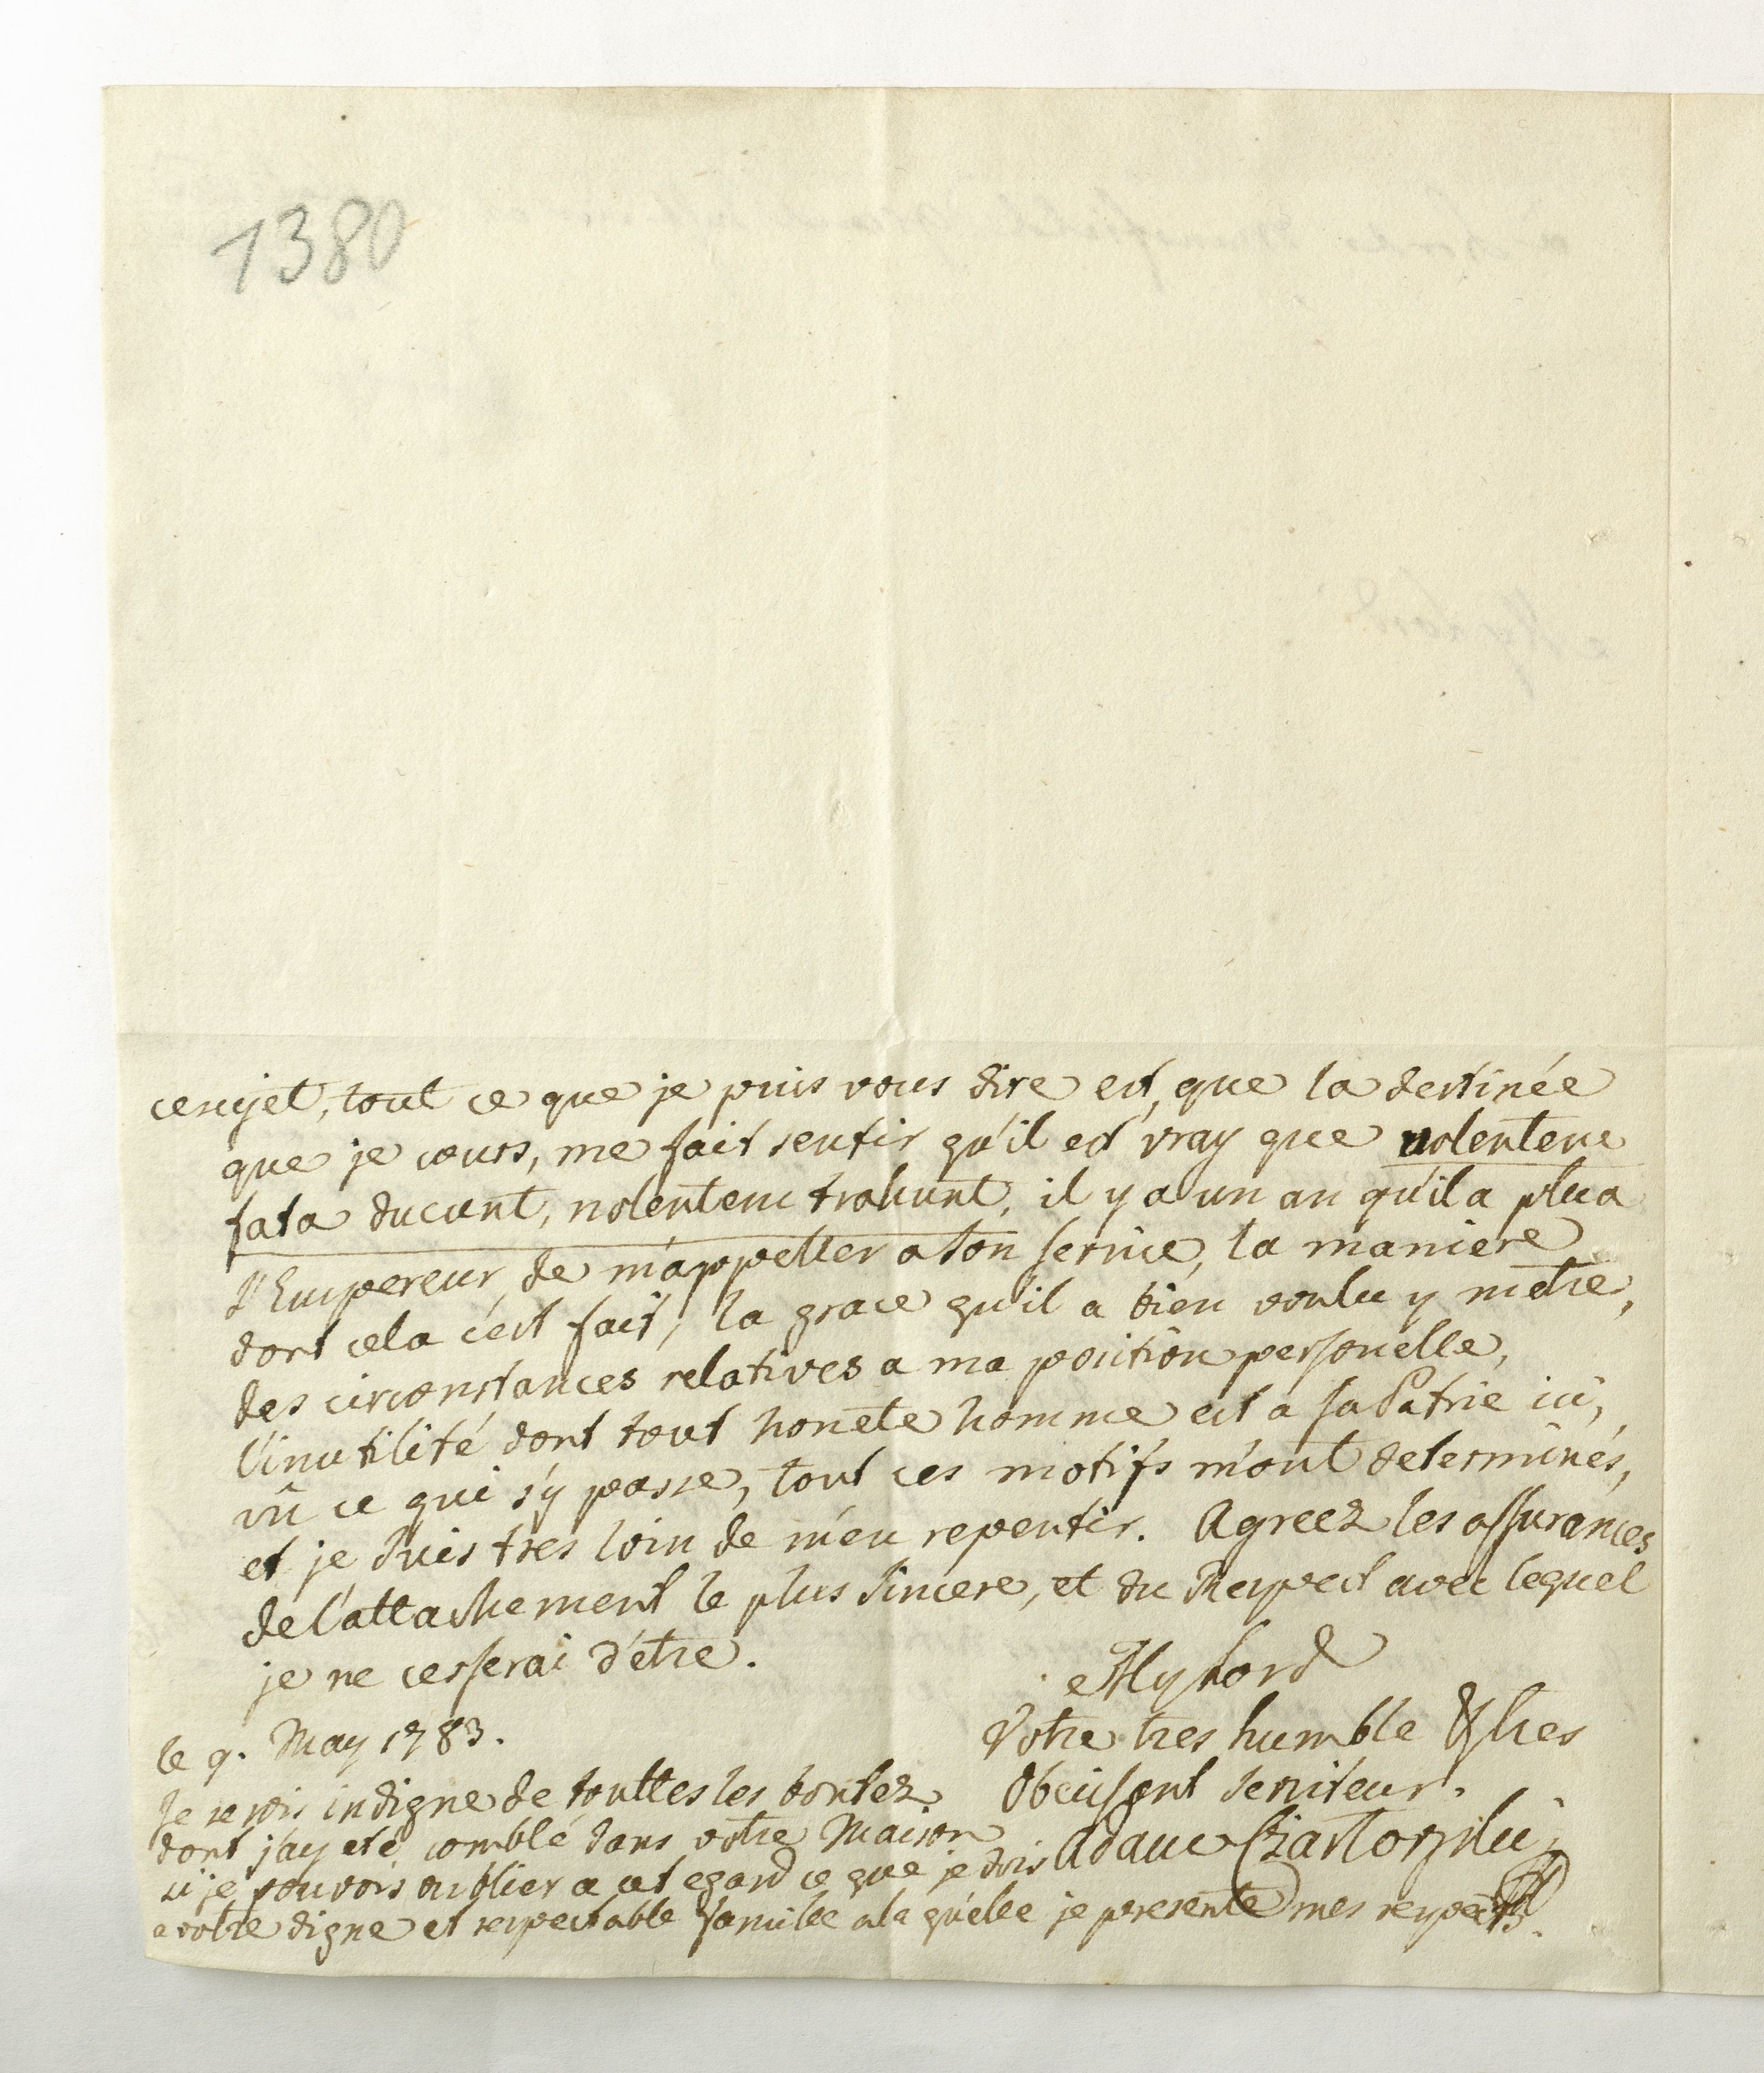 1380
cesujet, tout ce que je puis vous dire est, que la destinée
que je cours, me fait sentir qu'il est vray que nolentem
fata ducunt, nolentem trahunt, il y a un an qu'il a plu a
l'Empereur de m'appeller a son service, la maniere
dont cela c'est fait, la grace qu'il a bien voulu y metre,
des circonstances relatives a ma position personelle,
l'inutilité dont tout honete homme est a sa Patrie ici,
vû ce qui s'y passe, tout ces motifs m'ont determinés,
et je suis tres loin de m'en repentir. Agreez les assurances
de l'attachement le plus sincere, et du Respect avec lequel
je ne cesserai d'étre.
Mylord
Votre tres humble & tres
Obeissent serviteur.
Adam Czartoryski
le 9. May 1783.
Je serois indigne de touttes les bontez
dont j'ay eté comblé dans votre Maison
si je pouvois oublier a cet egard ce que je dois
a votre digne et respectable famille a la quelle je presente mes respects.